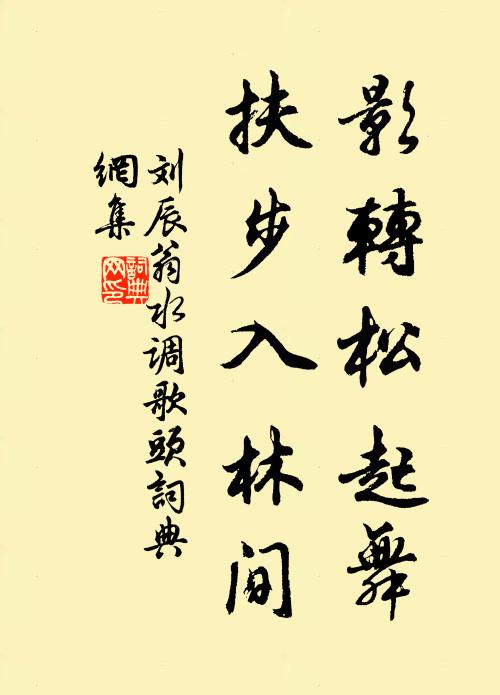 影轉松起舞
扶步入林间
刘辰翁水调歌頭詞典
網集
詞典
网印